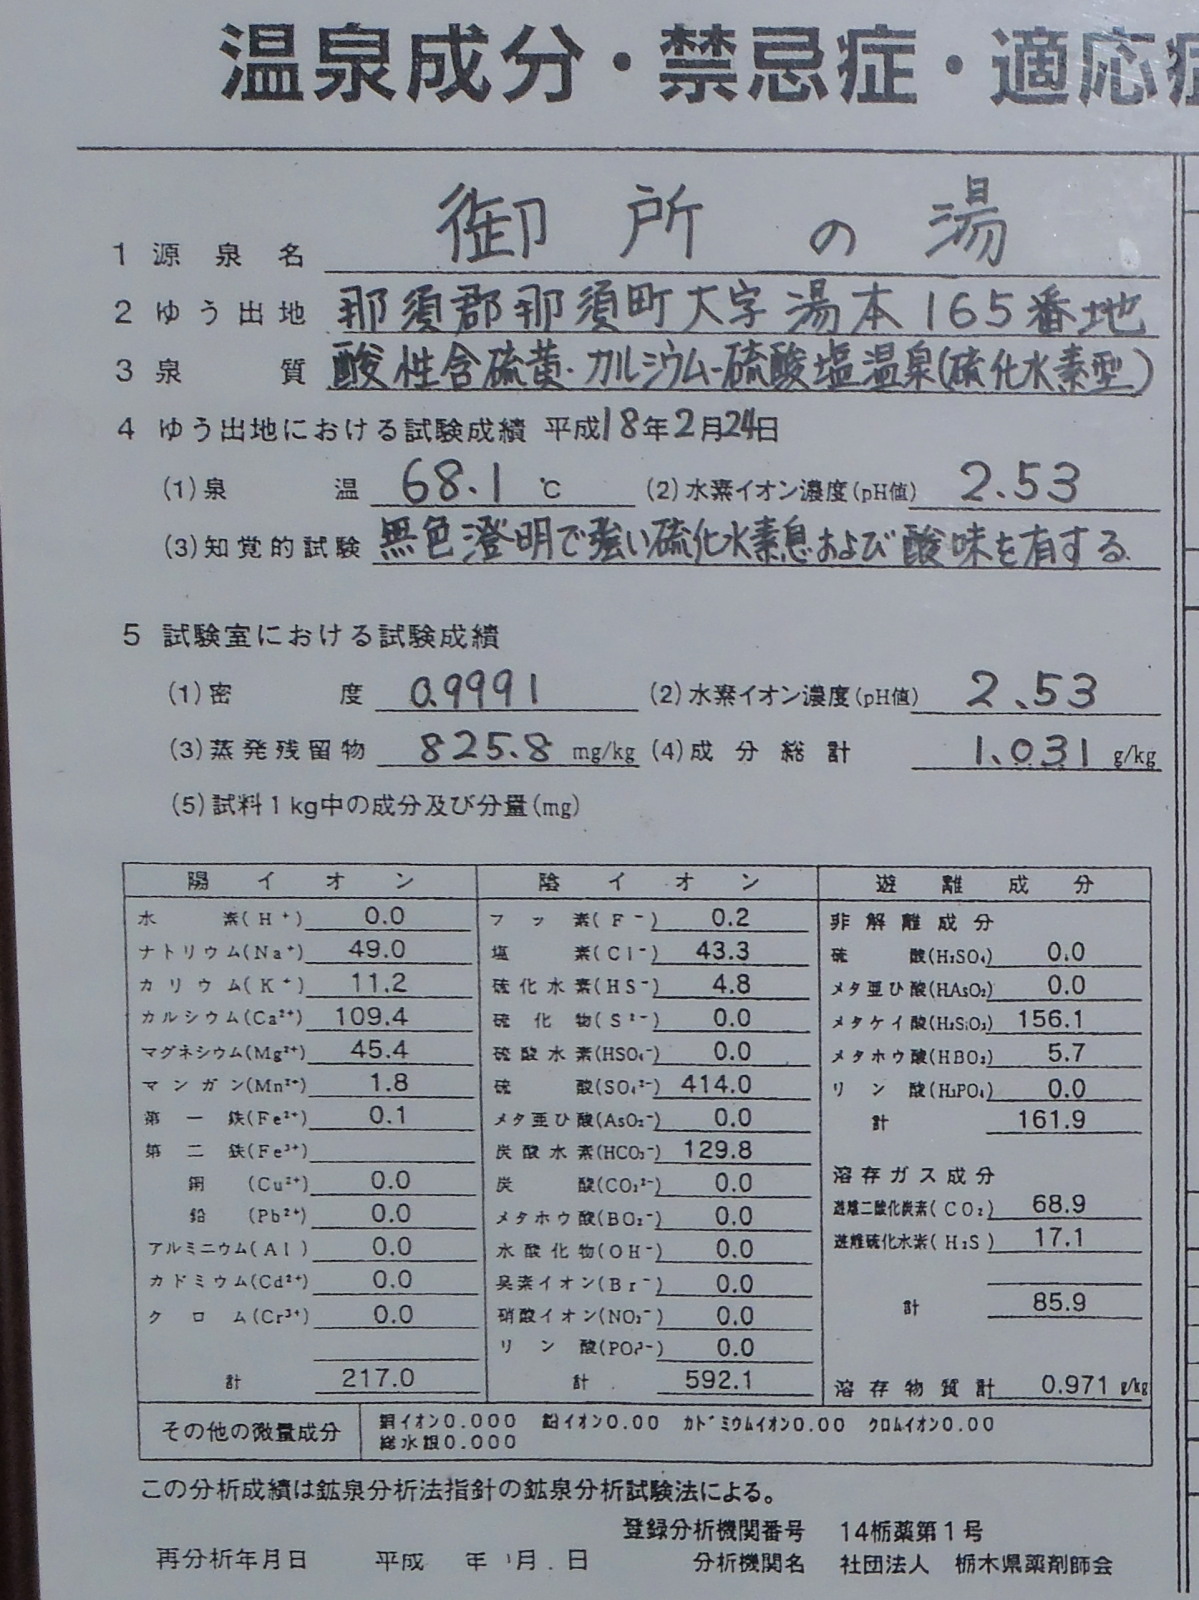 温泉成分・禁忌症・適応症
1 源泉名 御所の湯
2 ゆう出地 那須郡那須町大字湯本165番地
3 泉質 酸性含硫黄・カルシウム-硫酸塩温泉(硫化水素型)
4 ゆう出地における試験成績 平成18年2月24日
(1)泉温 68.1 ℃ (2)水素イオン濃度(pH値) 2.53
(3)知覚的試験 無色澄明で強い硫化水素臭および酸味を有する.
5 試験室における試験成績
(1)密度 0.9991 (2)水素イオン濃度(pH値) 2.53
(3)蒸発残留物 825.8 mg/kg (4)成分総計 1.031 g/kg
(5)試料1kg中の成分及び分量(mg)
陽イオン
水素(H⁺) 0.0
ナトリウム(Na⁺) 49.0
カリウム(K⁺) 11.2
カルシウム(Ca²⁺) 109.4
マグネシウム(Mg²⁺) 45.4
マンガン(Mn²⁺) 1.8
第一鉄(Fe²⁺) 0.1
第二鉄(Fe³⁺)
銅(Cu²⁺) 0.0
鉛(Pb²⁺) 0.0
アルミニウム(Al) 0.0
カドミウム(Cd²⁺) 0.0
クロム(Cr³⁺) 0.0
計 217.0
陰イオン
フッ素(F⁻) 0.2
塩素(Cl⁻) 43.3
硫化水素(HS⁻) 4.8
硫化物(S²⁻) 0.0
硫酸水素(HSO₄⁻) 0.0
硫酸(SO₄²⁻) 414.0
メタ亜ひ酸(AsO₂⁻) 0.0
炭酸水素(HCO₃⁻) 129.8
炭酸(CO₃²⁻) 0.0
メタホウ酸(BO₂⁻) 0.0
水酸化物(OH⁻) 0.0
臭素イオン(Br⁻) 0.0
硝酸イオン(NO₃⁻) 0.0
リン酸(PO₄³⁻) 0.0
計 592.1
遊離成分
非解離成分
硫酸(H₂SO₄) 0.0
メタ亜ひ酸(HAsO₂) 0.0
メタケイ酸(H₂SiO₃) 156.1
メタホウ酸(HBO₂) 5.7
リン酸(H₃PO₄) 0.0
計 161.9
溶存ガス成分
遊離二酸化炭素(CO₂) 68.9
遊離硫化水素(H₂S) 17.1
計 85.9
溶存物質計 0.971 g/kg
その他の微量成分 銅イオン0.000 鉛イオン0.00 カドミウムイオン0.00 クロムイオン0.00
総水銀0.000
この分析成績は鉱泉分析法指針の鉱泉分析試験法による。
登録分析機関番号 14栃薬第1号
再分析年月日 平成 年 月 日 分析機関名 社団法人 栃木県薬剤師会